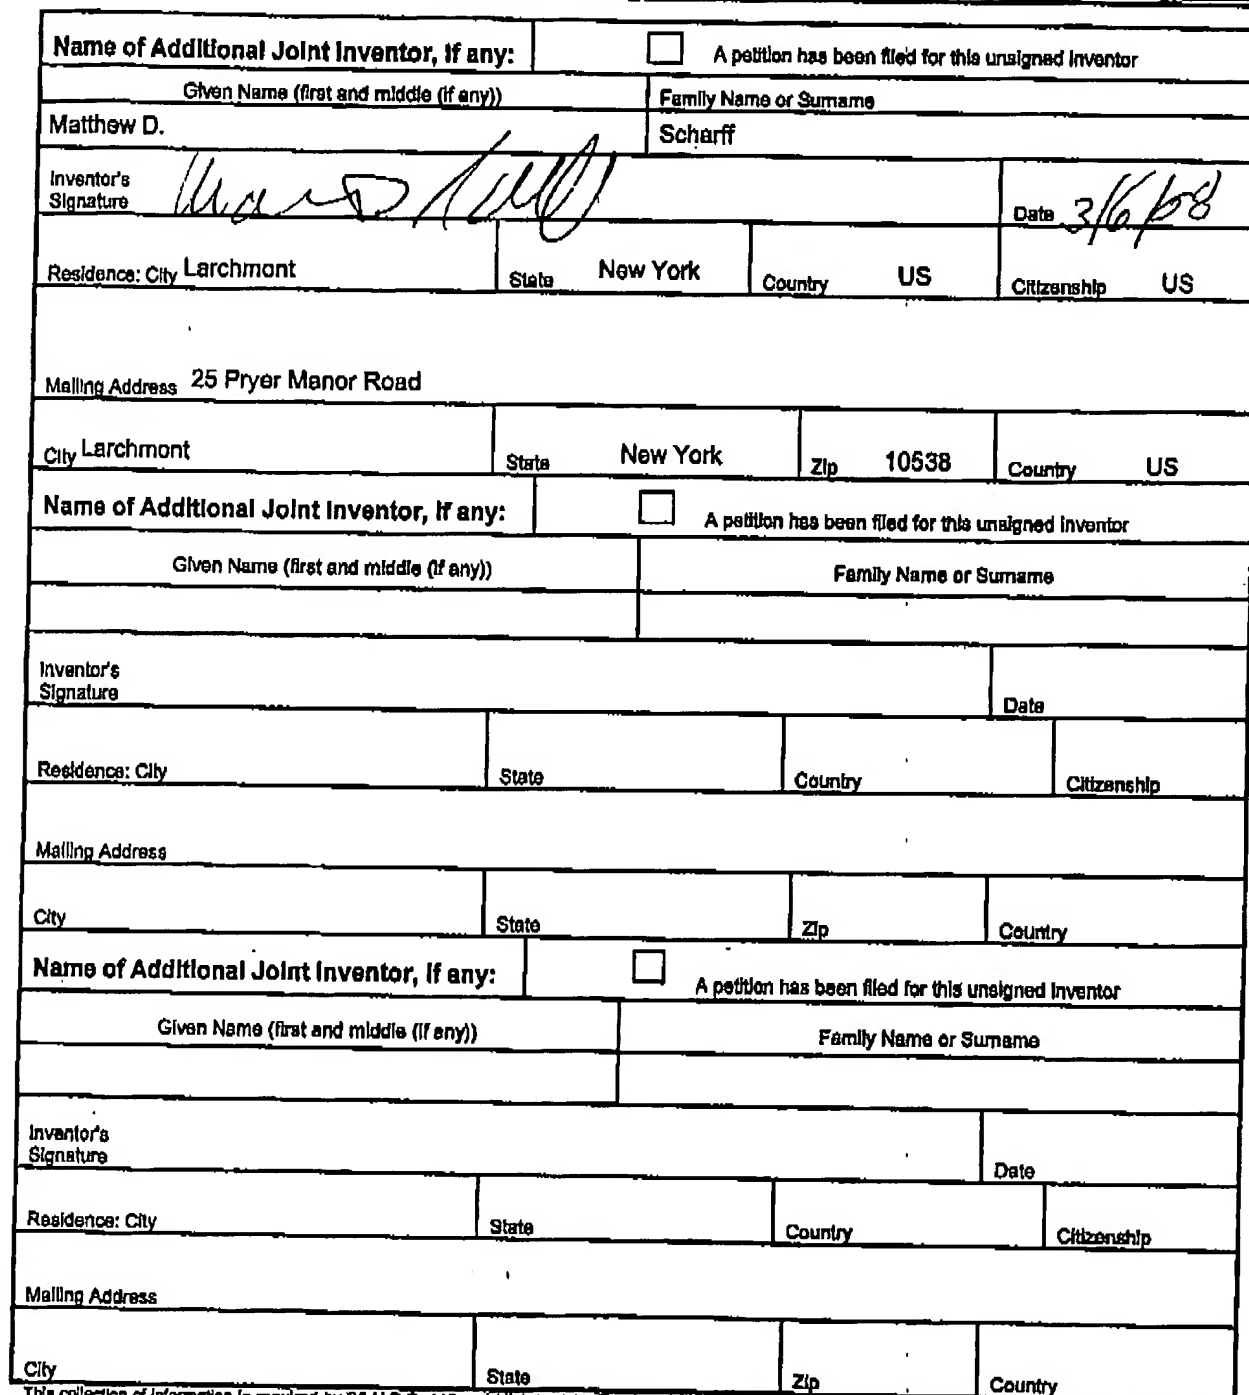 Name of Additional Joint Inventor, if any: A petition has been filed for this unsigned inventor
Given Name (first and middle (if any)) Family Name or Surname
Matthew D. Scharff
Inventor's
Signature Date 3/6/08
Residence: City Larchmont State New York Country US Citizenship US
Mailing Address 25 Pryer Manor Road
City Larchmont State New York Zip 10538 Country US
Name of Additional Joint Inventor, if any: A petition has been filed for this unsigned inventor
Given Name (first and middle (if any)) Family Name or Surname
Inventor's
Signature Date
Residence: City State Country Citizenship
Mailing Address
City State Zip Country
Name of Additional Joint Inventor, if any: A petition has been filed for this unsigned inventor
Given Name (first and middle (if any)) Family Name or Surname
Inventor's
Signature Date
Residence: City State Country Citizenship
Mailing Address
City State Zip Country